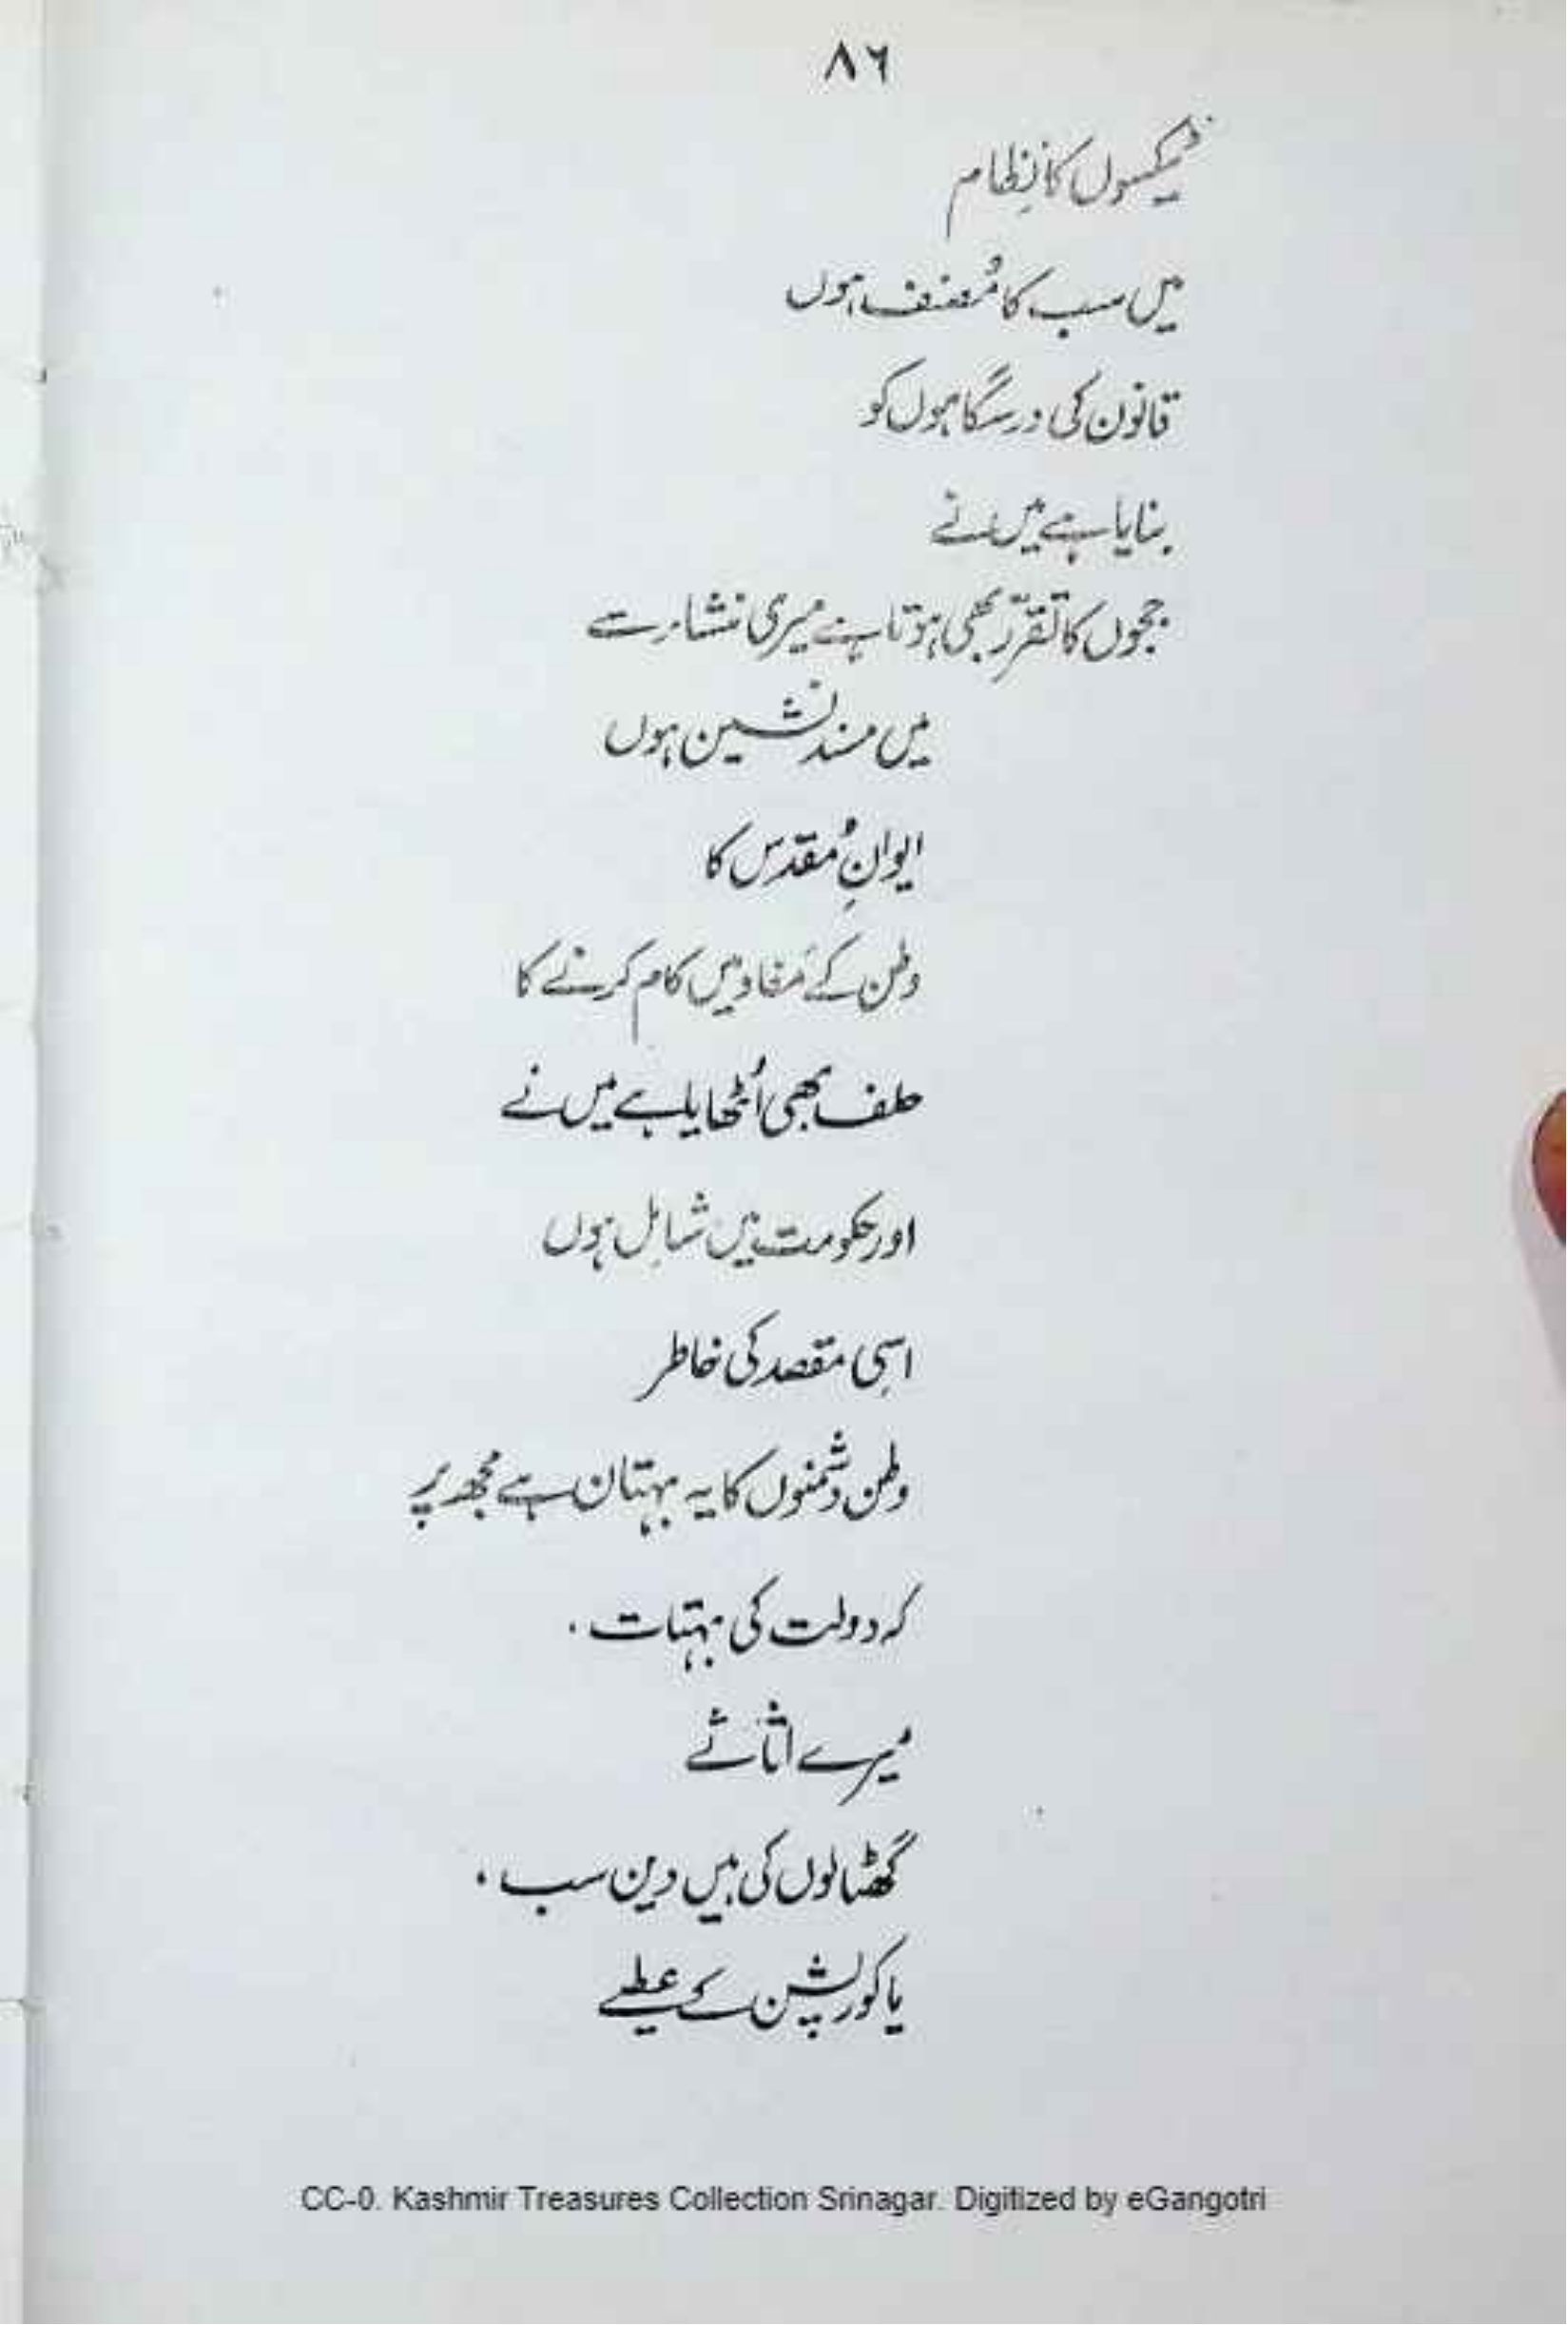 ٨٦
ٹیکسوں کا نِظام
میں سب کا مُصنف ہوں
قانون کی درسگاہوں کو
بنایا ہے میں نے
ججوں کا تقرّر بھی ہوتا ہے میری منشاء سے
میں مسند نشین ہوں
ایوانِ مُقدس کا
وطن کے مَفاد میں کام کرنے کا
حلف بھی اُٹھایا ہے میں نے
اور حکومت میں شامِل ہوں
اسِی مقصد کی خاطر
وطن دشمنوں کا یہ بہتان ہے مجھ پر
کہ دولت کی بہتات .
میرے اثاثے
گھٹالوں کی ہیں دین سب .
یا کورپشن کے عطیے
CC-0. Kashmir Treasures Collection Srinagar. Digitized by eGangotri